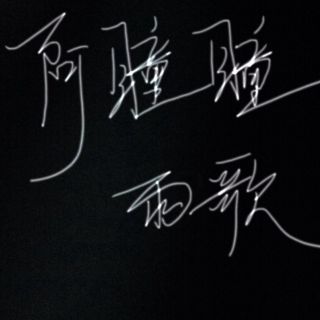 阿瞳瞳
雨歌